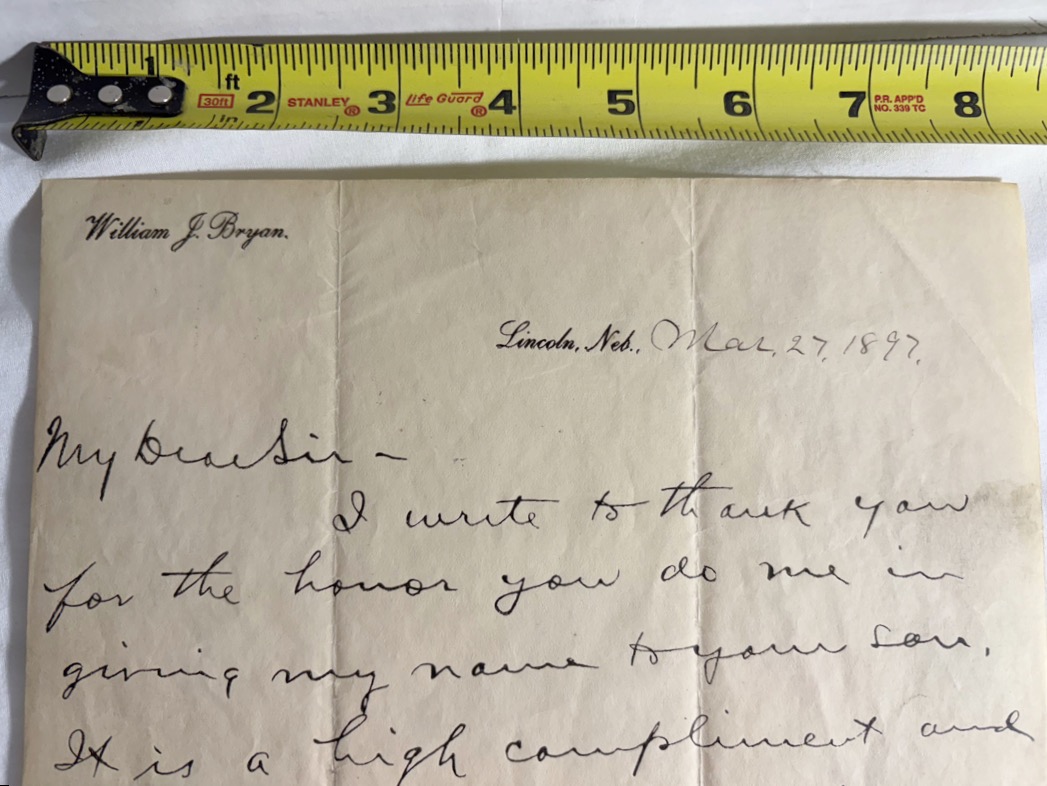 1 ft 30ft 2 STANLEY® 3 Life Guard® 4 5 6 7 P.R. APP'D 8
in. NO. 339 TC
William J. Bryan.
Lincoln, Neb., Mar. 27, 1897.
My Dear Sir –
I write to thank you
for the honor you do me in
giving my name to your son.
It is a high compliment and